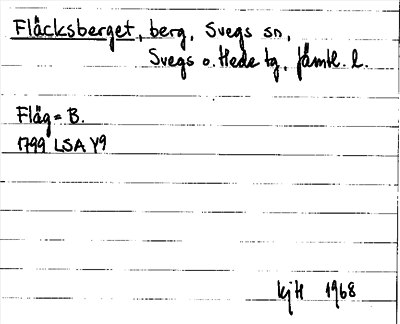 Fläcksberget, berg, Svegs sn,
Svegs o. Hede tg, Jämtl. l.
Fläg = B.
1799 LSA Y9
kjH 1968